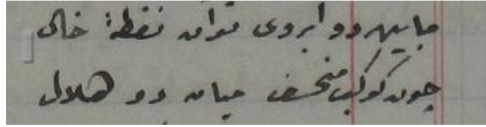 مابین دو ابروی تو آن نقطهٔ خال
چون کوکب منخسف میان دو هلال